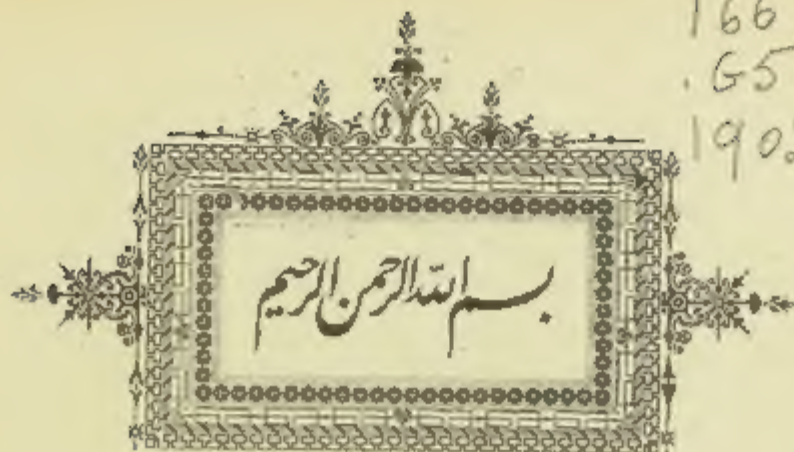 166
.G5
190
بسم الله الرحمن الرحيم